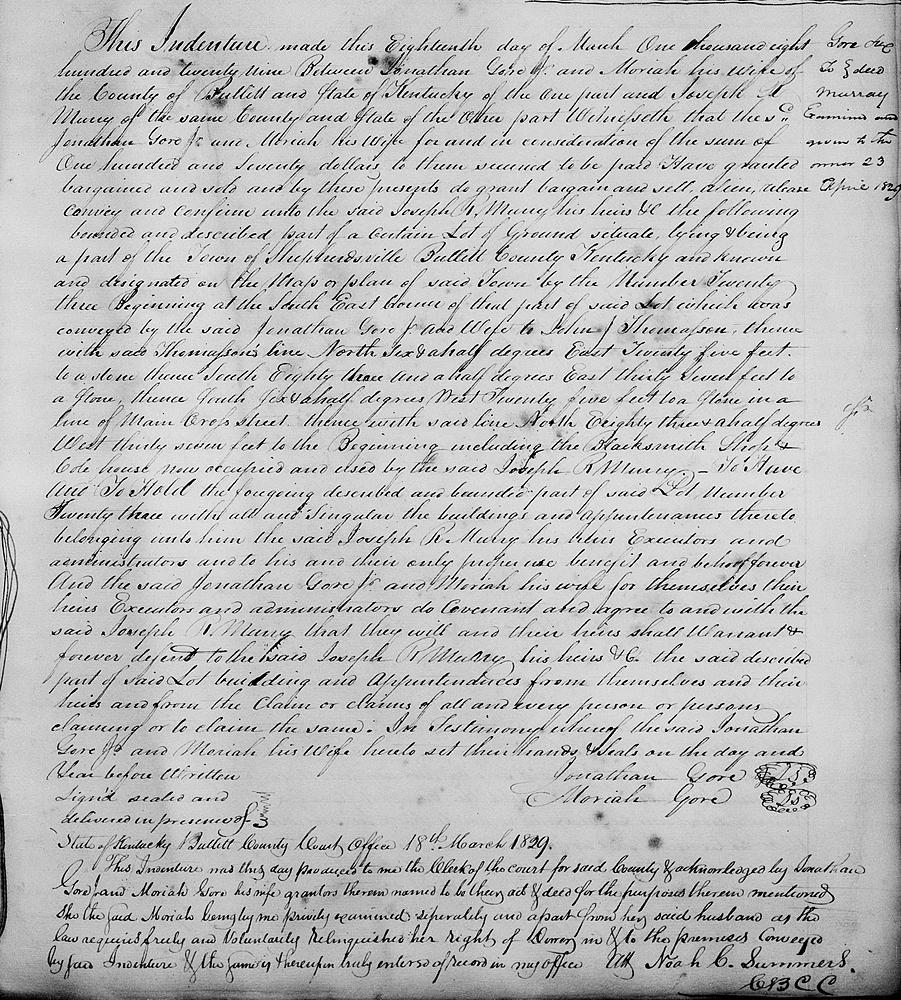 This Indenture made this Eighteenth day of March One thousand eight
hundred and twenty nine Between Jonathan Gore Jr and Moriah his wife of
the County of Bullitt and State of Kentucky of the One part and Joseph R
Murry of the same County and State of the Other part Witnesseth that the sd
Jonathan Gore Jr and Moriah his Wife for and in consideration of the sum of
One hundred and Seventy dollars to them secured to be paid Have granted
bargained and sold and by these presents do grant bargain and sell, alien, release
convey and confirm unto the said Joseph R Murry his heirs &c the following
bounded and described part of a Certain Lot of Ground situate, lying & being
a part of the Town of Shepherdsville Bullitt County Kentucky and known
and designated on the Map or plan of said Town by the Number Twenty
three Beginning at the South East Corner of that part of said Lot which was
conveyed by the said Jonathan Gore Jr And Wife to John J Thomasson, thence
with said Thomasson's line North Six & a half degrees East Twenty five feet
to a stone thence South Eighty three And a half degrees East thirty Seven feet to
a Stone, thence South Six & a half degrees West Twenty five feet to a Stone in a
line of Main Cross street thence with said line North Eeighty three & a half degrees
West thirty seven feet to the Beginning including the Blacksmith Shop &
Cole house now occupied and used by the said Joseph R Murry – To Have
And To Hold the foregoing described and bounded part of said Lot Number
Twenty three with all and Singular the buildings and appurtenances thereto
belonging unto him the said Joseph R Murry his heirs Executors and
administrators and to his and their only proper use benefit and behoof forever
And the said Jonathan Gore Jr and Moriah his wife for themselves their
heirs Executors and administrators do Covenant and agree to and with the
said Joseph R Murry that they will and their heirs shall Warrant &
forever defend to the said Joseph R Murry his heirs &c the said described
part of said Lot building and Appurtendnces from themselves and their
heirs and from the Claim or claims of all and every person or persons
claiming or to claim the same. In Testimony whereof the said Jonathan
Gore Jr and Moriah his Wife hereto set their hands & Seals on the day and
Year before Written
Jonathan Gore
Moriah Gore
Sign'd sealed and
delivered in presence of
State of Kentucky Bullitt County Court Office 18th March 1829.
This Indenture was this day produced to me the Clerk of the court for said County & acknowledged by Jonathan
Gore and Moriah Gore his wife grantors therein named to be their act & deed for the purposes therein mentioned
She the said Moriah being by me privily examined seperately and apart from her said husband as the
law requires freely and Voluntarily Relinquished her right of Dower in & to the premises conveyed
by said Indenture & the same is thereupon truly entered of record in my office Att Noah C. Summers.
C B C C
Gore &c
To } deed
Murray
Examined and
given to the
23
April 1829